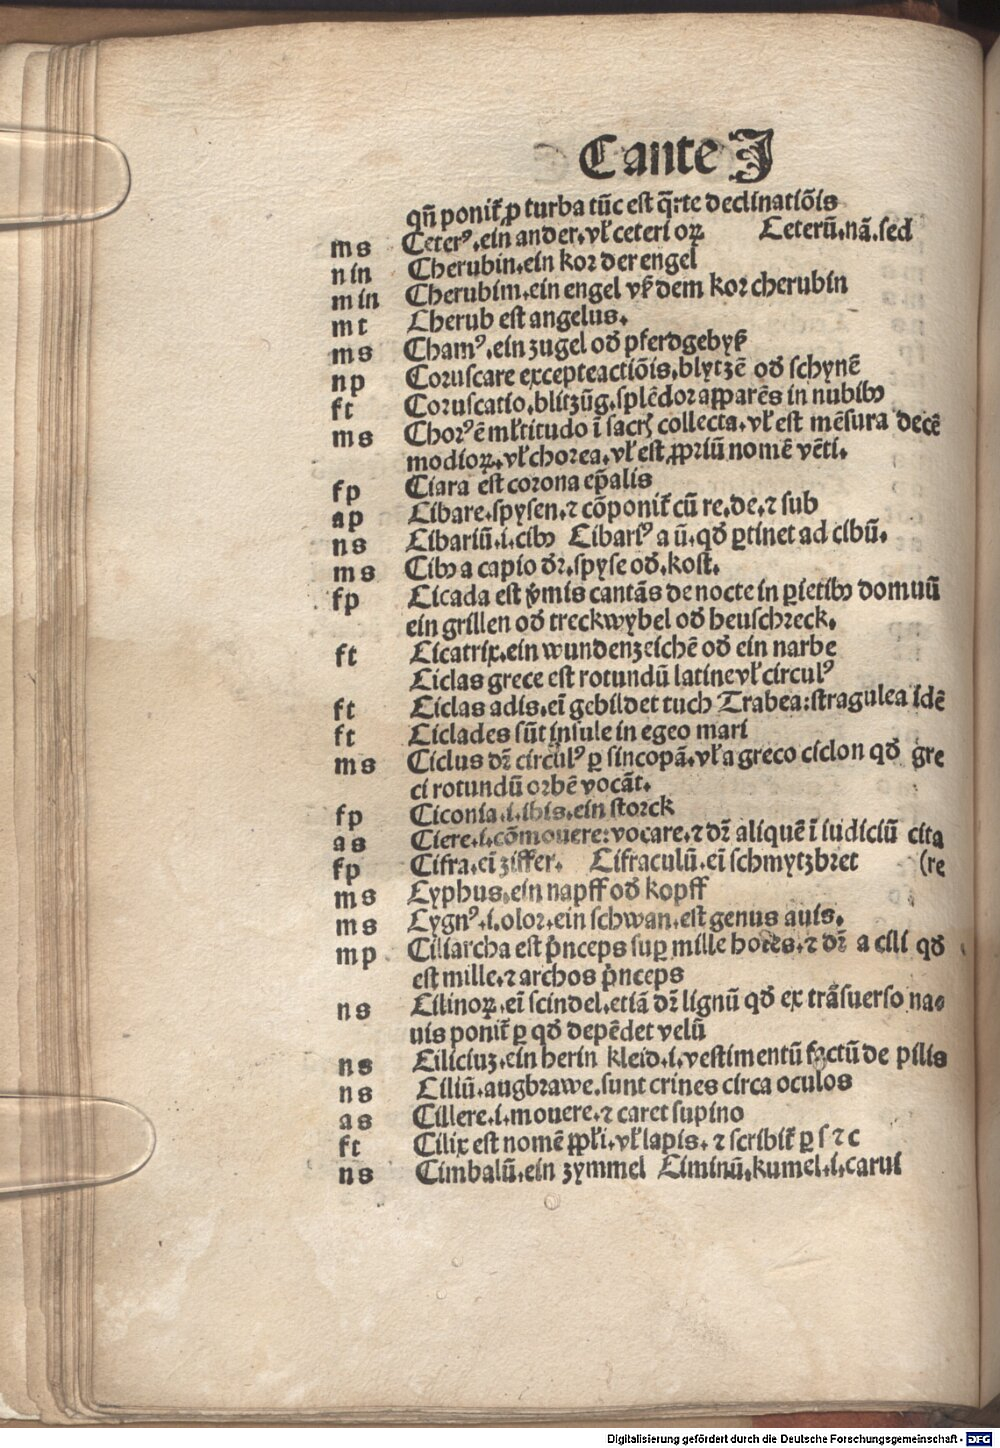 C ante I
qn̄ ponit᷑ ꝓ turba tūc est q̄rte declinatiōis
ms Ceterꝰ.ein ander.vl̓ ceteri oꝝ Ceterū.nā.sed
nin Cherubin.ein kor der engel
min Cherubim.ein engel vß dem kor cherubin
mt Cherub est angelus.
ms Chamꝰ.ein zugel od̓ pferdgebyß
np Coruscare excepteactiōis.blytzē od̓ schynē
ft Coruscatio.blitzūg.splēdor apparēs in nubibꝰ
ms Chorꝰ ē ml̓titudo ī sacꝭ collecta.vl̓ est mēsura decē
modioꝝ.vl̓ chorea.vl̓ est ꝓpriū nomē vēti.
fp Ciara est corona ep̄alis
ap Cibare.spysen.⁊ cōponit᷑ cū re.de.⁊ sub
ns Cibariū.i.cibꝰ Cibariꝰ a ū.qd̓ ꝑtinet ad cibū.
ms Cibꝰ a capio dr̄.spyse od̓.kost.
fp Cicada est v̓mis cantās de nocte in ꝑietibꝰ domuū
ein grillen od̓ treckwybel od̓ heuschreck.
ft Cicatrix.ein wundenzeichē od̓ ein narbe
Ciclas grece est rotundū latine vl̓ circulꝰ
ft Ciclas adis.eī gebildet tuch Trabea:stragulea idē
ft Ciclades sūt insule in egeo mari
ms Ciclus dr̄ circulꝰ ꝑ sincopā.vl̓ a greco ciclon qd̓ gre
ci rotundū orbē vocāt.
fp Ciconia.i.ibis.ein storck
as Ciere.i.cōmouere:vocare.⁊ dr̄ aliquē ī iudiciū cita
fp Cifra.eī ziffer. Cifraculū.eī schmytzbret (re
ms Cyphus.ein napff od̓ kopff
ms Cygnꝰ.i.olor.ein schwan.est genus auis.
mp Ciliarcha est p̄nceps suꝑ mille hoīes.⁊ dr̄ a cili qd̓
est mille.⁊ archos p̄nceps
ns Cilinoꝝ.eī scindel.etiā dr̄ lignū qd̓ ex trāsuerso na⸗
uis ponit᷑ ꝑ qd̓ depēdet velū
ns Ciliciuz.ein herin kleid.i.vestimentū factū de pilis
ns Ciliū.augbrawe.sunt crines circa oculos
as Cillere.i.mouere.⁊ caret supino
ft Cilix est nomē ppl̓i.vl̓ lapis.⁊ scribit᷑ ꝑ s ⁊ c
ns Cimbalū.ein zymmel Ciminū.kumel.i.carui
Digitalisierung gefördert durch die Deutsche Forschungsgemeinschaft - DFG